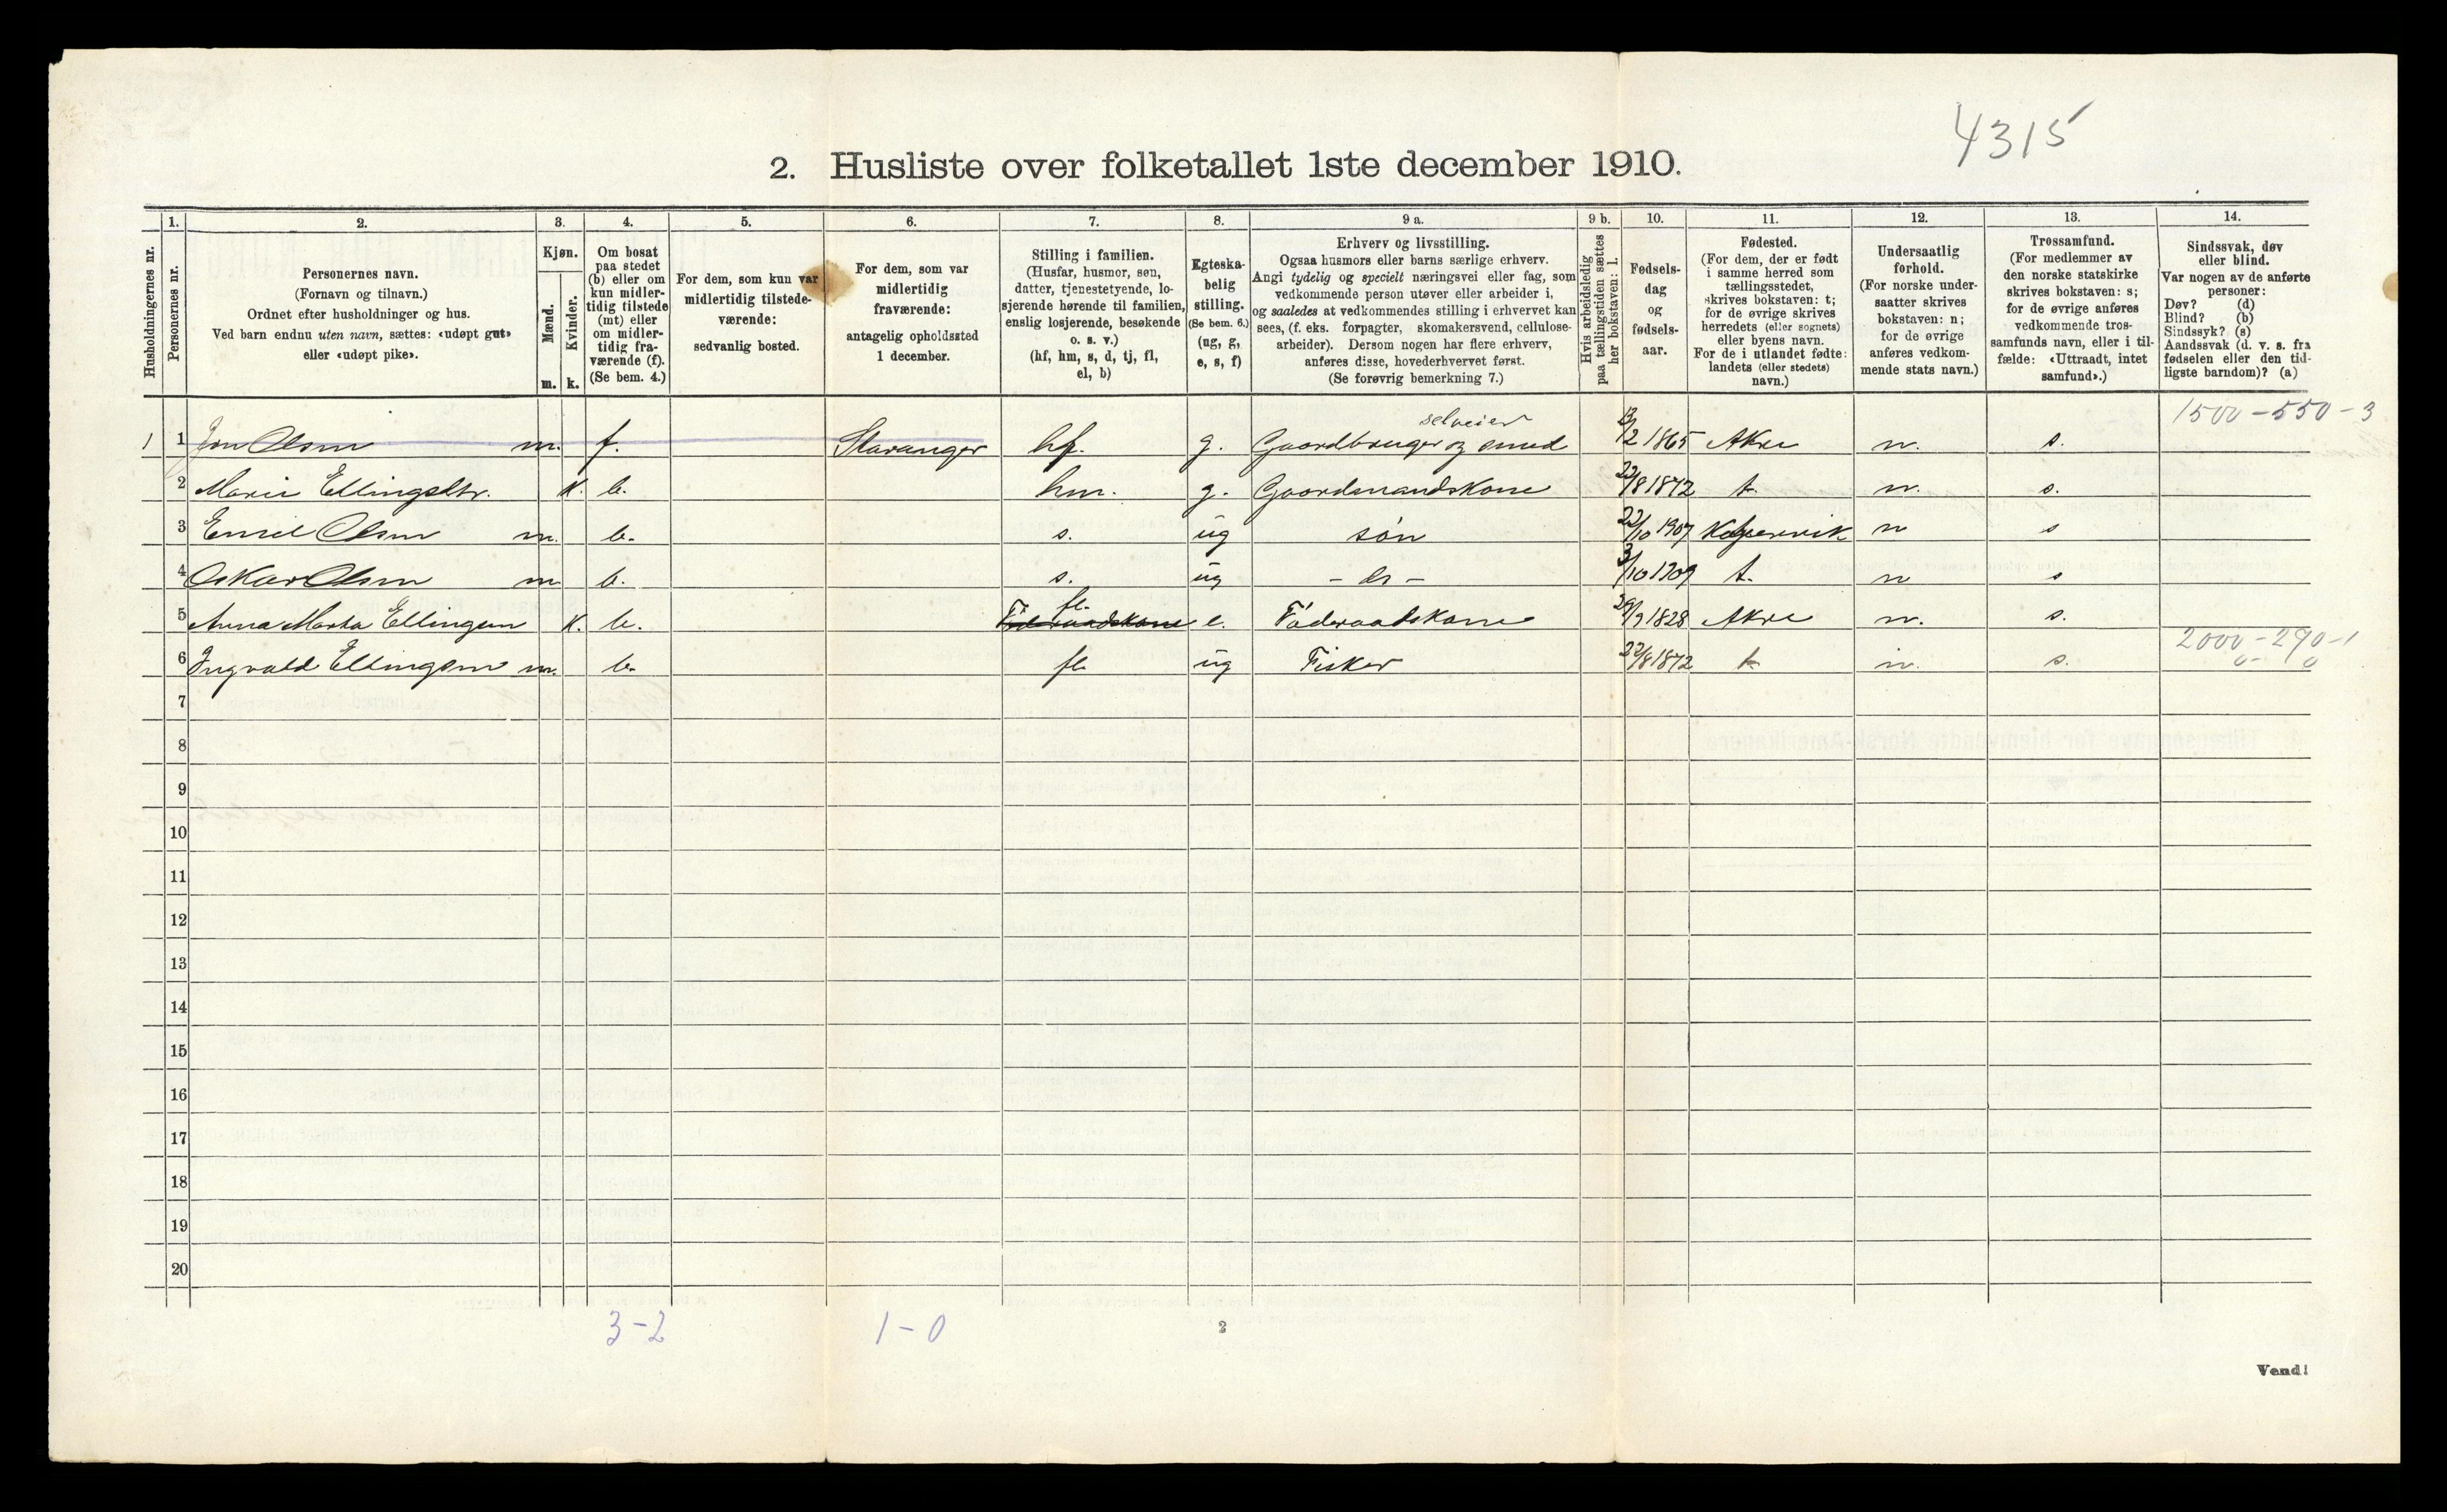 4315
2. Husliste over folketallet 1ste december 1910.
Husholdningernes nr.
1.
Personernes nr.
2.
Personernes navn.
(Fornavn og tilnavn.)
Ordnet efter husholdninger og hus.
Ved barn endnu uten navn, sættes: «udøpt gut»
eller «udøpt pike».
3.
Kjøn.
Mænd.
Kvinder.
m. k.
4.
Om bosat
paa stedet
(b) eller om
kun midler-
tidig tilstede
(mt) eller
om midler-
tidig fra-
værende (f).
(Se bem. 4.)
5.
For dem, som kun var
midlertidig tilstede-
værende:
sedvanlig bosted.
6.
For dem, som var
midlertidig
fraværende:
antagelig opholdssted
1 december.
7.
Stilling i familien.
(Husfar, husmor, søn,
datter, tjenestetyende, lo-
sjerende hørende til familien,
enslig losjerende, besøkende
o. s. v.)
(hf, hm, s, d, tj, fl,
el, b)
8.
Egteska-
belig
stilling.
(Se bem. 6.)
(ug, g,
e, s, f)
9 a.
Erhverv og livsstilling.
Ogsaa husmors eller barns særlige erhverv.
Angi tydelig og specielt næringsvei eller fag, som
vedkommende person utøver eller arbeider i,
og saaledes at vedkommendes stilling i erhvervet kan
sees, (f. eks. forpagter, skomakersvend, cellulose-
arbeider). Dersom nogen har flere erhverv,
anføres disse, hovederhvervet først.
(Se forøvrig bemerkning 7.)
9 b.
Hvis arbeidsledig
paa tællingstiden sættes
her bokstaven: l.
10.
Fødsels-
dag
og
fødsels-
aar.
11.
Fødested.
(For dem, der er født
i samme herred som
tællingsstedet,
skrives bokstaven: t;
for de øvrige skrives
herredets (eller sognets)
eller byens navn.
For de i utlandet fødte:
landets (eller stedets)
navn.)
12.
Undersaatlig
forhold.
(For norske under-
saatter skrives
bokstaven: n;
for de øvrige
anføres vedkom-
mende stats navn.)
13.
Trossamfund.
(For medlemmer av
den norske statskirke
skrives bokstaven: s;
for de øvrige anføres
vedkommende tros-
samfunds navn, eller i til-
fælde: «Uttraadt, intet
samfund».)
14.
Sindssvak, døv
eller blind.
Var nogen av de anførte
personer:
Døv? (d)
Blind? (b)
Sindssyk? (s)
Aandssvak (d. v. s. fra
fødselen eller den tid-
ligste barndom)? (a)
1500-550-3
selveier
1 1 Jon Olsen m. f. Stavanger hf. g. Gaardbruger og smed 13/2 1865 Akre n. s.
2 Marie Ellingsdtr. k. b. hm. g. Gaardmandskone 22/8 1872 t. n. s.
3 Emil Olsen m. b. s. ug søn 22/10 1907 Kopervik n s
4 Oskar Olsen m b. s. ug - do - 3/10 1909 t. n s
fl.
5 Anna Marta Ellingsen k. b. Føderaadskone e. Føderaadskone 29/9 1828 Akre n. s.
2000-290-1
6 Ingvald Ellingsen m. b. fl ug Fisker 22/8 1872 t n. s. 0- 0
7
8
9
10
11
12
13
14
15
16
17
18
19
20
3-2 1-0
2
Vend!